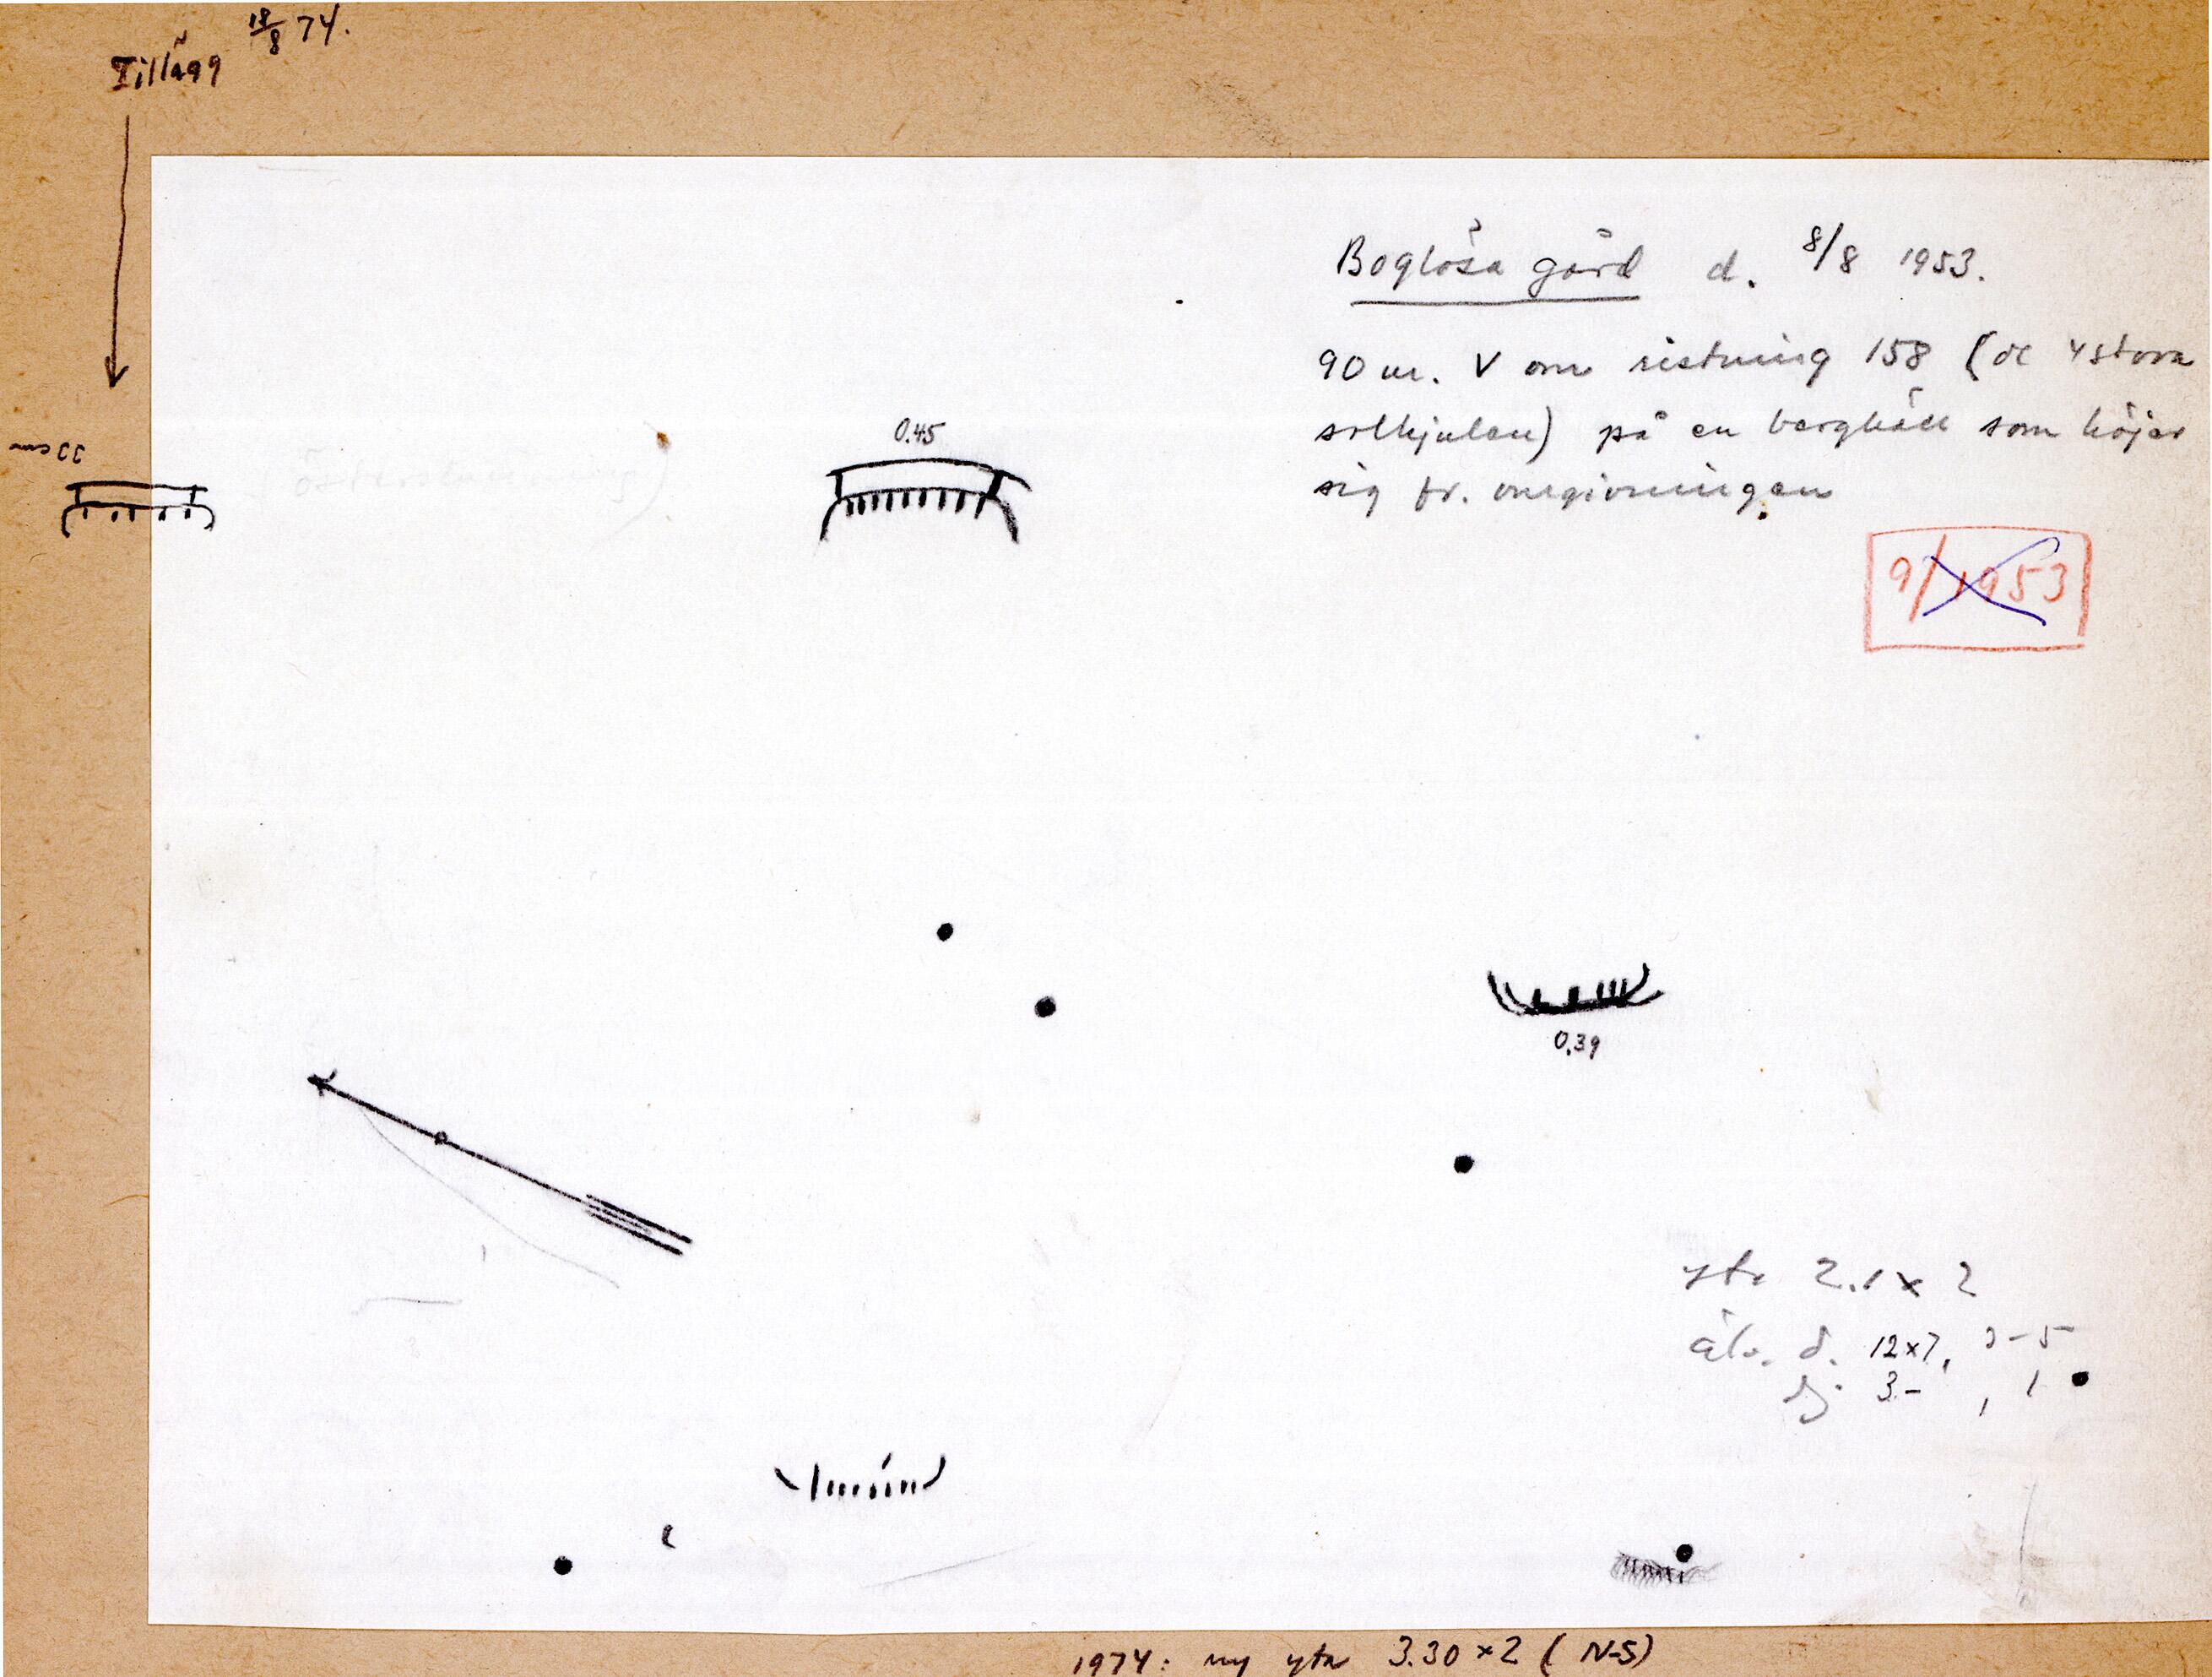 18/8 74.
Tillägg
Boglösa gård d. 8/8 1953.
90 m. V om ristning 158 (de 4 stora
solhjulen) på en berghäll som höjer
sig fr. omgivningen
33 cm
0.45
9/1953
0.39
yta 2.1 x 2
älv. d. 12x7, 3-5
dj. 3- , 1
1974: ny yta 3.30 x 2 (N-S)